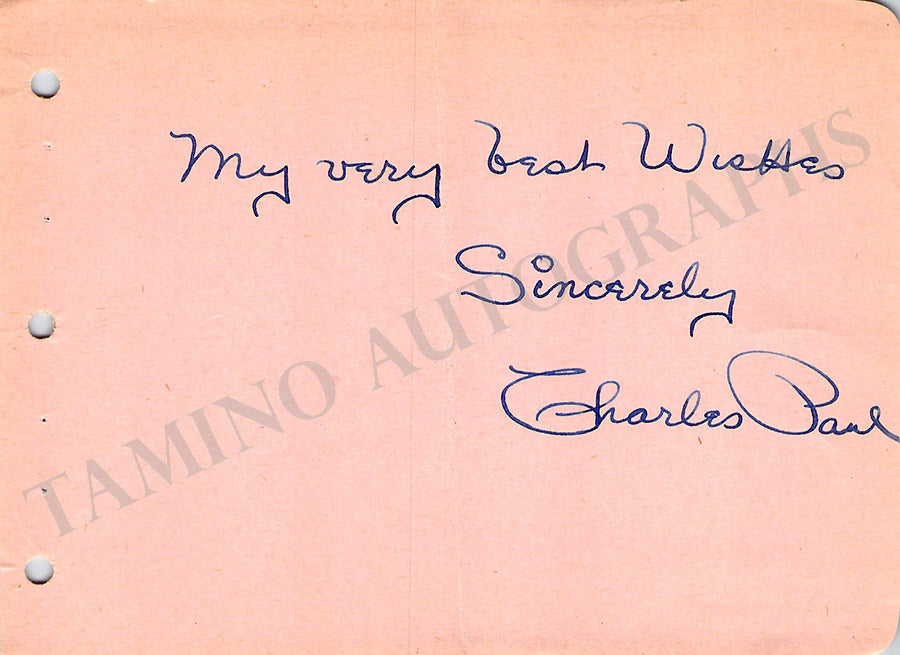 My very best Wishes
Sincerely
Charles Paul
TAMINO AUTOGRAPHS